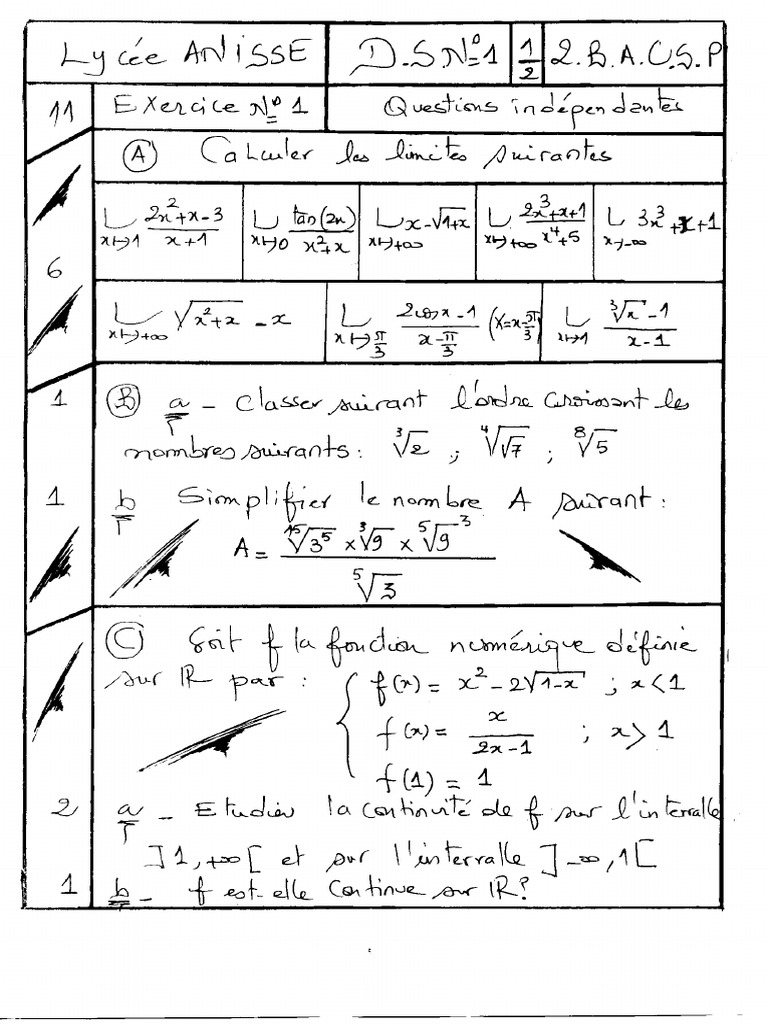 Lycée ANISSE D.S N°1 1/2 2.B.A.C.S.P
11 Exercice N° 1 Questions indépendantes
(A) Calculer les limites suivantes
6
lim x→1 (2x²+x-3)/(x+1) lim x→0 tan(2x)/(x²+x) lim x→+∞ x-√(1+x) lim x→+∞ (2x³+x+1)/(x⁴+5) lim x→-∞ 3x³+x+1
lim x→+∞ √(x²+x) - x lim x→π/3 (2cosx-1)/(x-π/3) (X=x-π/3) lim x→1 (∛x -1)/(x-1)
1 (B) a - Classer suivant l'ordre croissant les
nombres suivants : ∛2 ; ⁴√√7 ; ⁸√5
1 b Simplifier le nombre A suivant :
A = (¹⁵√3⁵ × ∛9 × ⁵√9³)/⁵√3
(C) Soit f la fonction numérique définie
sur IR par : f(x) = x² - 2√(1-x) ; x<1
f(x) = x/(2x-1) ; x>1
f(1) = 1
2 a - Etudier la continuité de f sur l'intervalle
]1,+∞[ et sur l'intervalle ]-∞,1[
1 b - f est-elle continue sur IR?